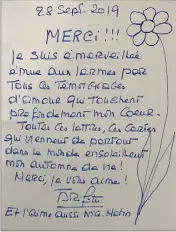 28 Sept. 2019
MERCI!!!
Je suis émerveillée
émue aux larmes par
Tous ces témoignages
d'amour qui touchent
profondément mon Coeur.
Toutes ces lettres, ces cartes
qui viennent de partout
dans le monde ensoleillent
mon automne de vie!
Merci, je vous aime!
Et j'aime aussi